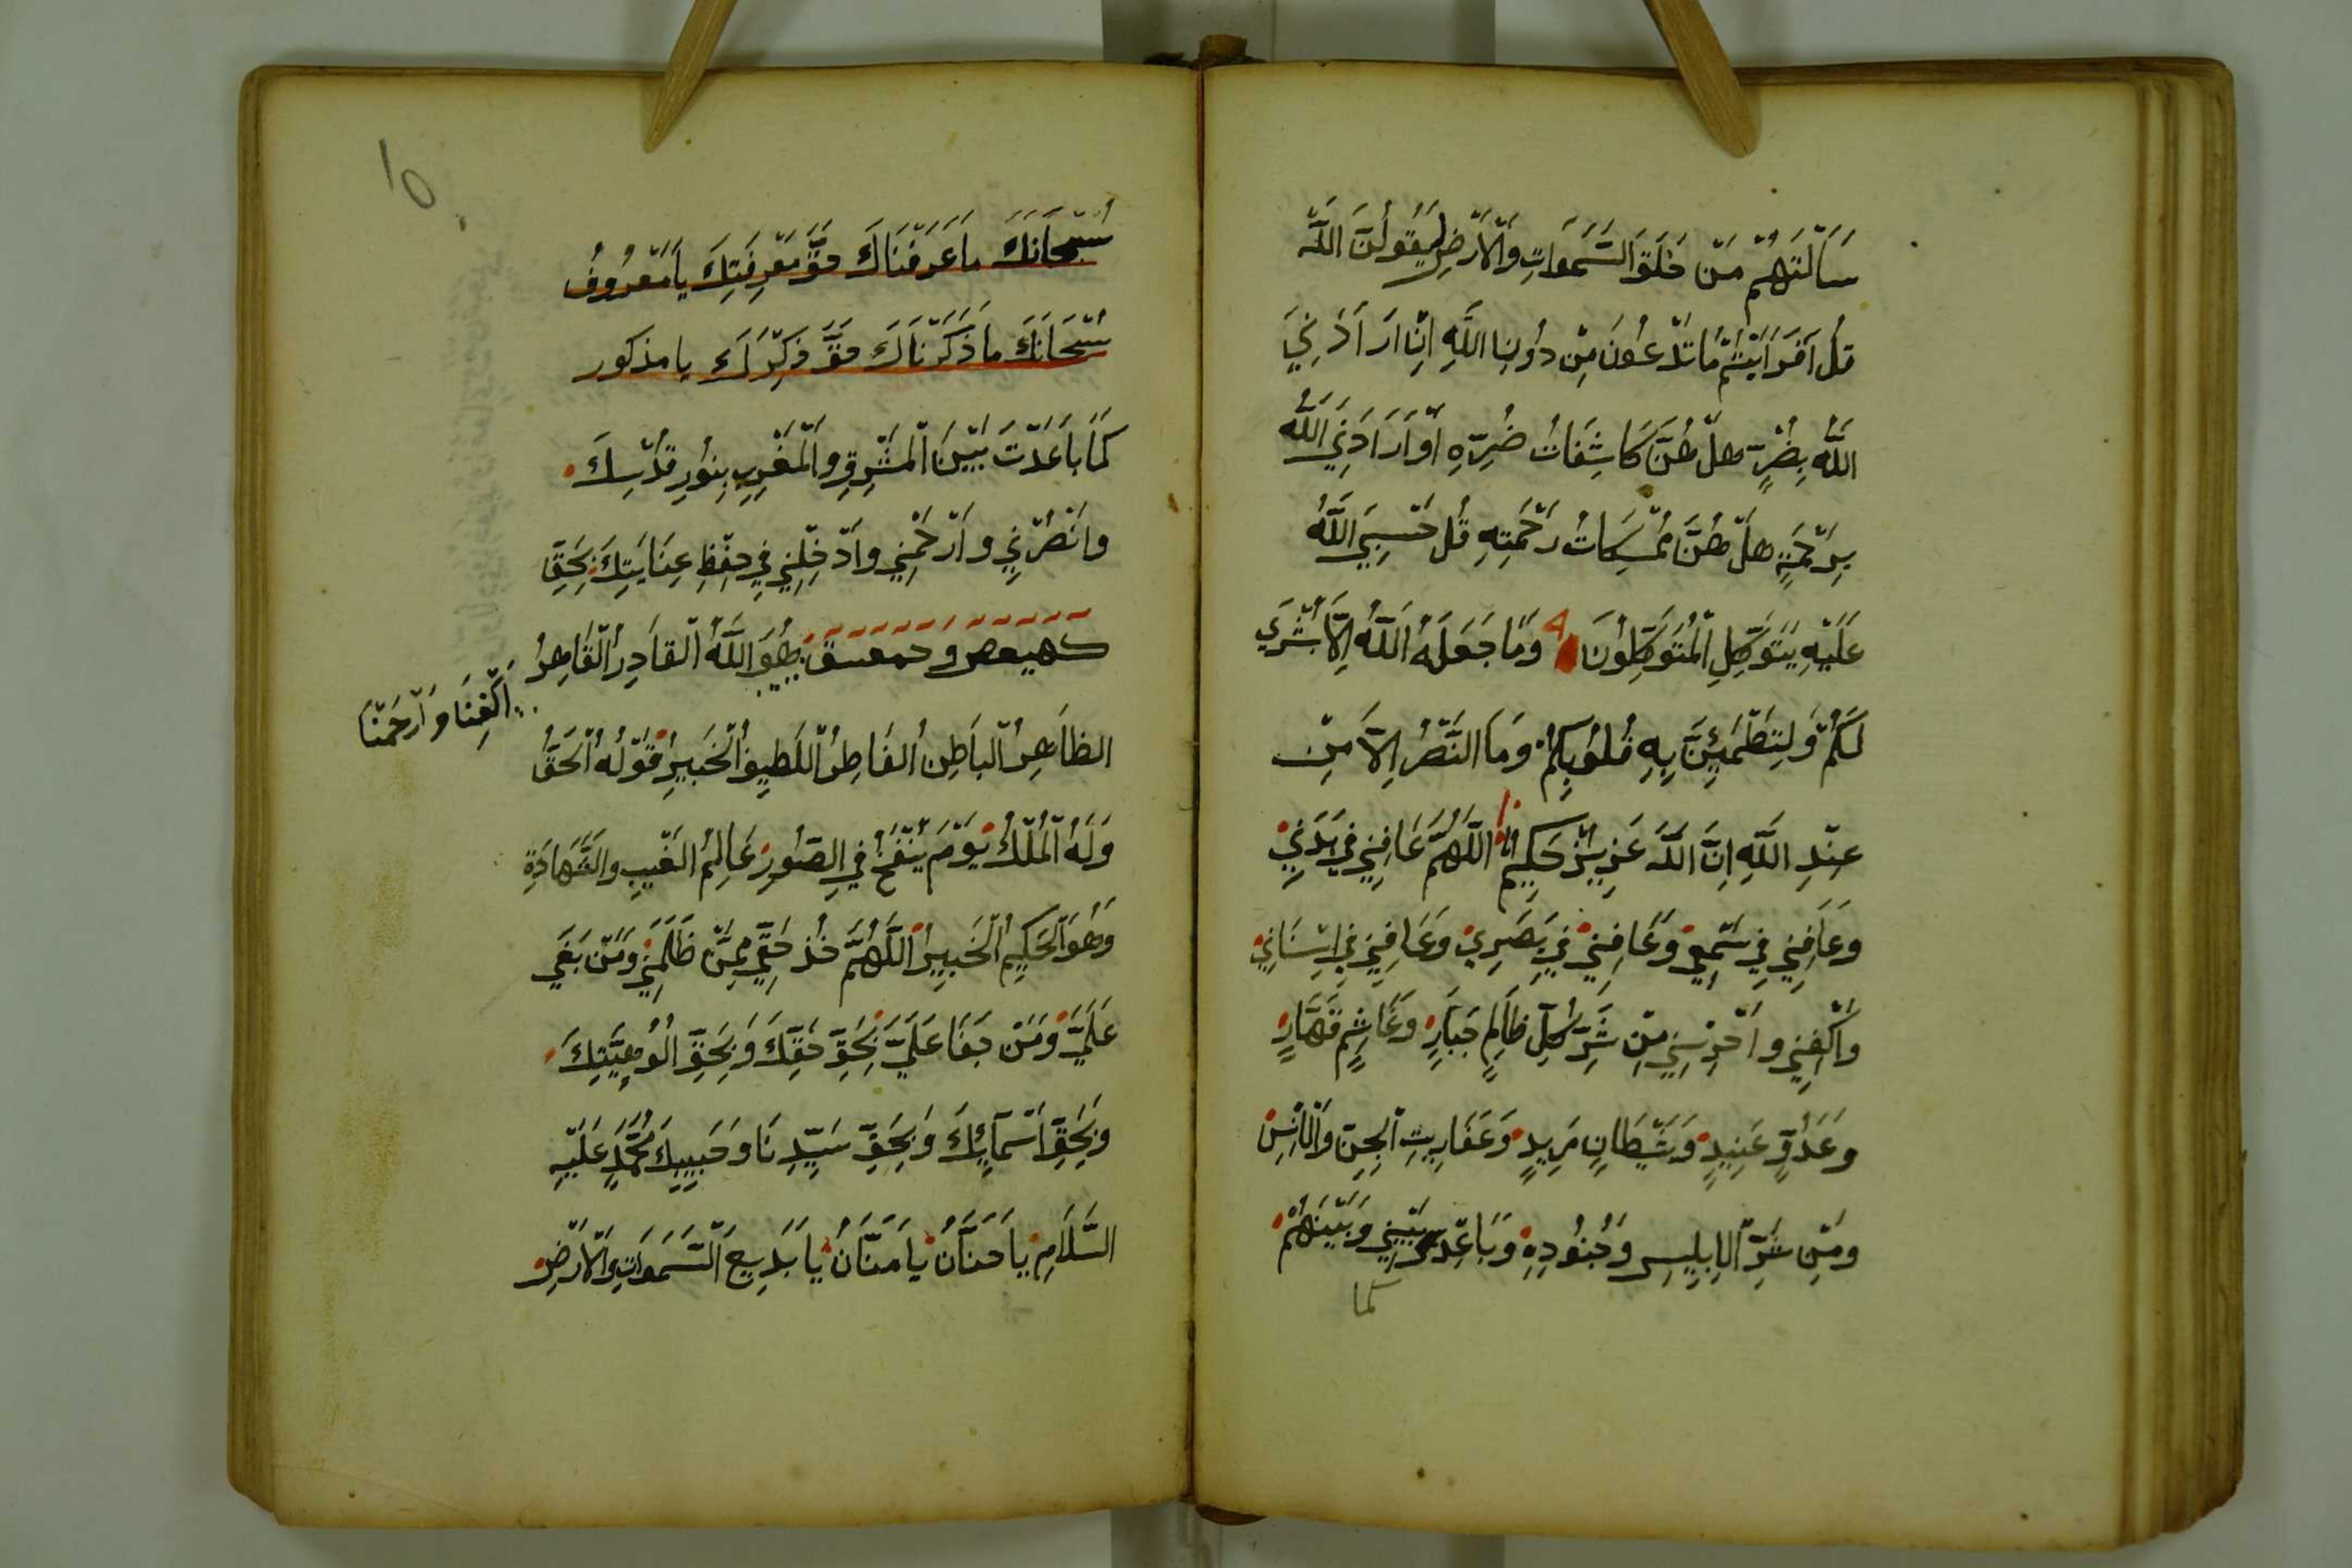 سَأَلْتَهُمْ مَنْ خَلَقَ السَّمَوَاتِ وَالْأَرْضِ لَيَقُولُنَّ اللَّهَ
قُلْ أَفَرَأَيْتُمْ مَا تَدْعُونَ مِنْ دُونِ اللَّهِ إِنْ أَرَادَنِيَ
اللَّهُ بِضُرٍّ هَلْ هُنَّ كَاشِفَاتُ ضُرِّهِ أَوْ أَرَادَنِيَ اللَّهُ
بِرَحْمَةٍ هَلْ هُنَّ مُمْسِكَاتُ رَحْمَتِهِ قُلْ حَسْبِيَ اللَّهُ
عَلَيْهِ يَتَوَكَّلِ الْمُتَوَكِّلُونَ ٩ وَمَا جَعَلَهُ اللَّهُ إِلَّا بُشْرَى
لَكُمْ وَلِتَطْمَئِنَّ بِهِ قُلُوبُكُمْ وَمَا النَّصْرُ إِلَّا مِنْ
عِنْدِ اللَّهِ إِنَّ اللَّهَ عَزِيزٌ حَكِيمٌ ١٠ اللَّهُمَّ عَافِنِي فِي بَدَنِي
وَعَافِنِي فِي سَمْعِي وَعَافِنِي فِي بَصَرِي وَعَافِنِي فِي اسْنَانِي
وَاكْفِنِي وَاحْرُسْنِي مِنْ شَرِّ كُلِّ ظَالِمٍ جَبَّارٍ وَغَاشِمٍ قَهَّارٍ
وَعَدُوٍّ عَنِيدٍ وَشَيْطَانٍ مَرِيدٍ وَعَفَارِيتِ الْجِنِّ وَالْإِنْسِ
وَمِنْ شَرِّ الْإِبْلِيسِ وَجُنُودِهِ وَبَاعِدْ بَيْنِي وَبَيْنَهُمْ
كما
١٥
سُبْحَانَكَ مَا عَرَفْنَاكَ حَقَّ مَعْرِفَتِكَ يَا مَعْرُوفُ
سُبْحَانَكَ مَا ذَكَرْنَاكَ حَقَّ ذِكْرِكَ يا مذكور
كَمَا بَاعَدْتَ بَيْنَ الْمَشْرِقِ وَالْمَغْرِبِ بِنُورِ قُدْسِكَ
وَانْصُرْنِي وَارْحَمْنِي وَادْخِلْنِي فِي حِفْظِ عِنَايَتِكَ بِحَقِّ
كهيعص وحمعسق هُوَ اللَّهُ الْقَادِرُ الْقَاهِرُ
اكْفِنَا وَارْحَمْنَا
الظَّاهِرُ الْبَاطِنُ الْفَاطِرُ اللَّطِيفُ الْخَبِيرُ قَوْلُهُ الْحَقُّ
وَلَهُ الْمُلْكُ يَوْمَ يُنْفَخُ فِي الصُّورِ عَالِمُ الْغَيْبِ وَالشَّهَادَةِ
وَهُوَ الْحَكِيمُ الْخَبِيرُ اللَّهُمَّ خُذْ حَقِّي مِمَّنْ ظَلَمَنِي وَمَنْ بَغَى
عَلَيَّ وَمَنْ جَفَا عَلَيَّ بِحَقِّ حَقِّكَ وَبِحَقِّ أُلُوهِيَّتِكَ
وَبِحَقِّ أَسْمَائِكَ وَبِحَقِّ سَيِّدِنَا وَحَبِيبِكَ مُحَمَّدٍ عَلَيْهِ
السَّلَامِ يَا حَنَّانُ يَا مَنَّانُ يَا بَدِيعَ السَّمَوَاتِ وَالْأَرْضِ